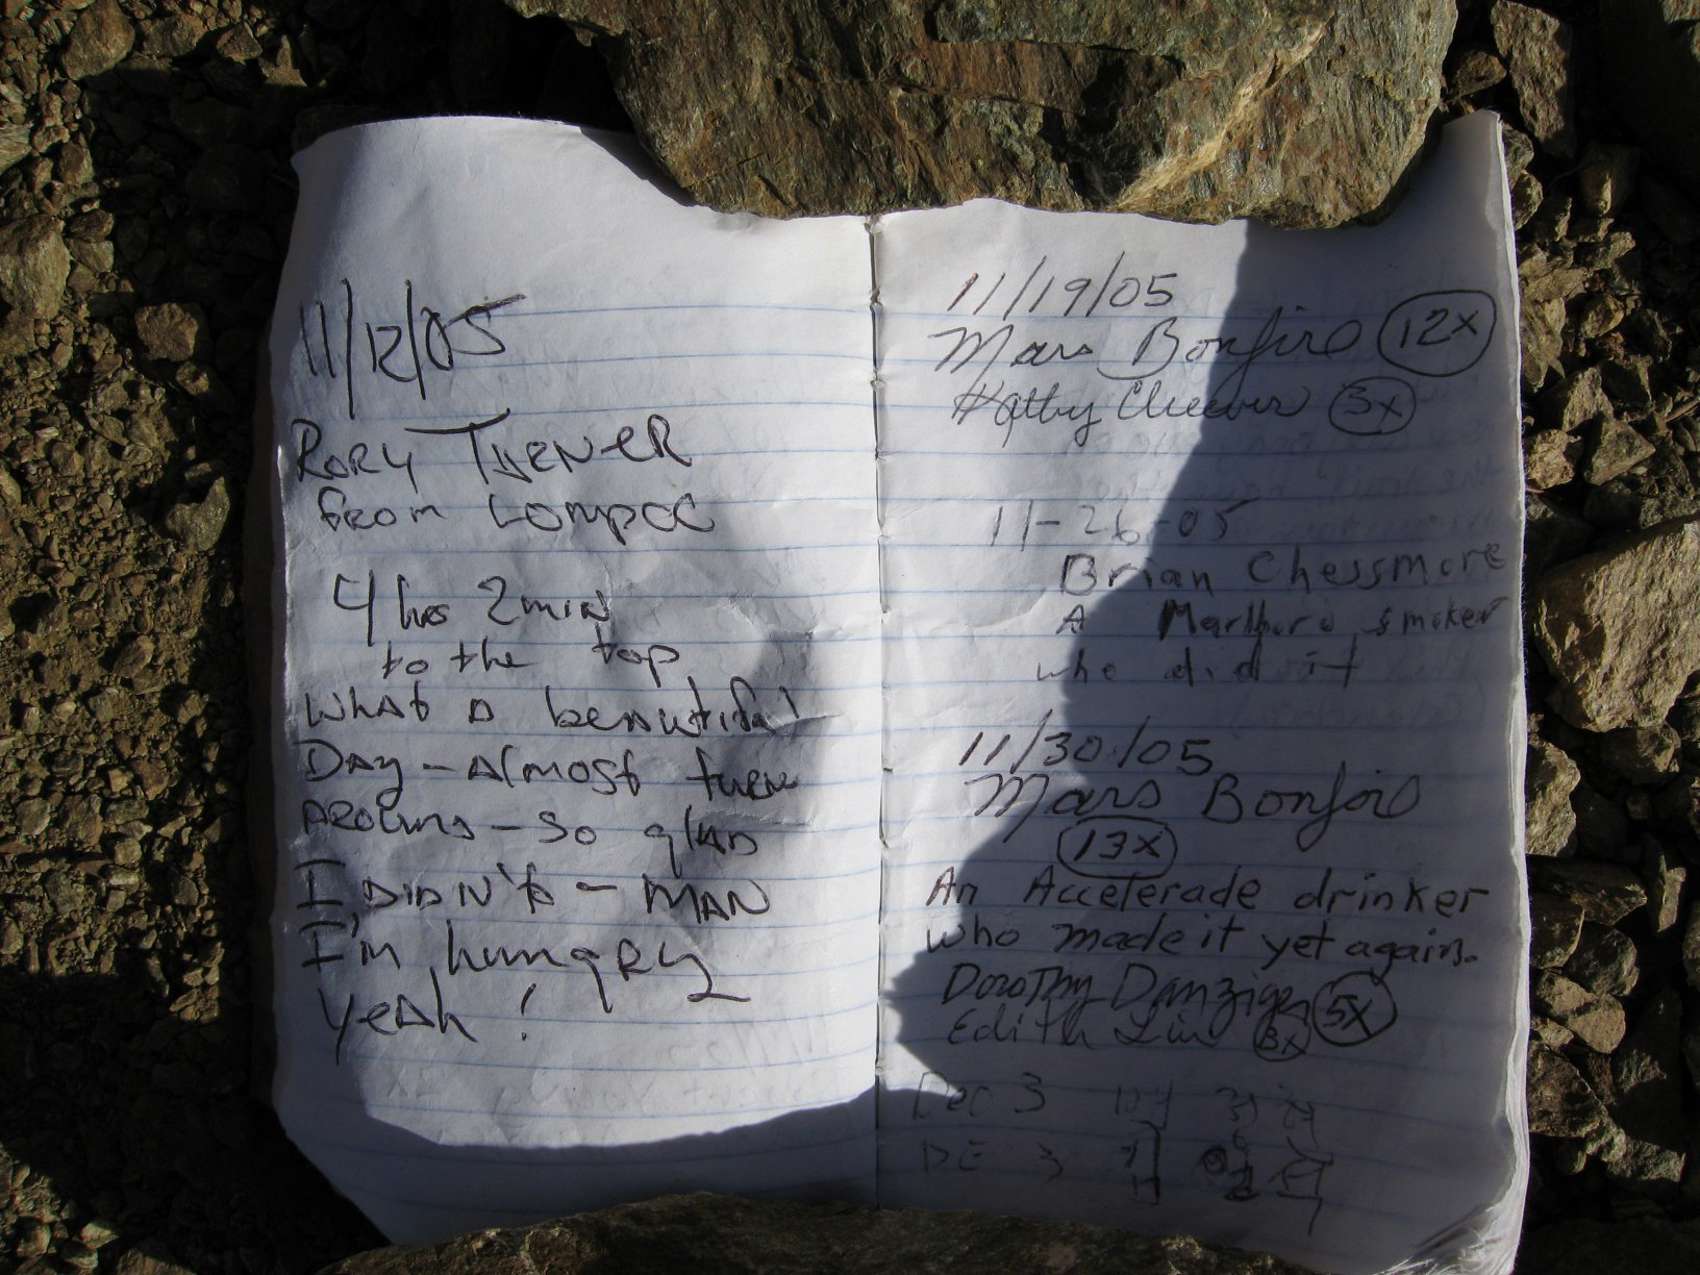 11/12/05
RORY TURNER
FROM LOMPOC
4 hrs 2 min
to the top
WHAt A beautiful
DAy - Almost turn
AROUND - So glAD
I DIDN't - MAN
I'm hungRy
yeah!
11/19/05
Mars Bonfire 12x
Kathy Cheever 3x
11-26-05
Brian Chessmore
A Marlboro smoker
who did it
11/30/05
Mars Bonfire
13x
An Accelerade drinker
who made it yet again.
Dorothy Danziger 5x
Edith Liu 3x
Dec 3
DE 3